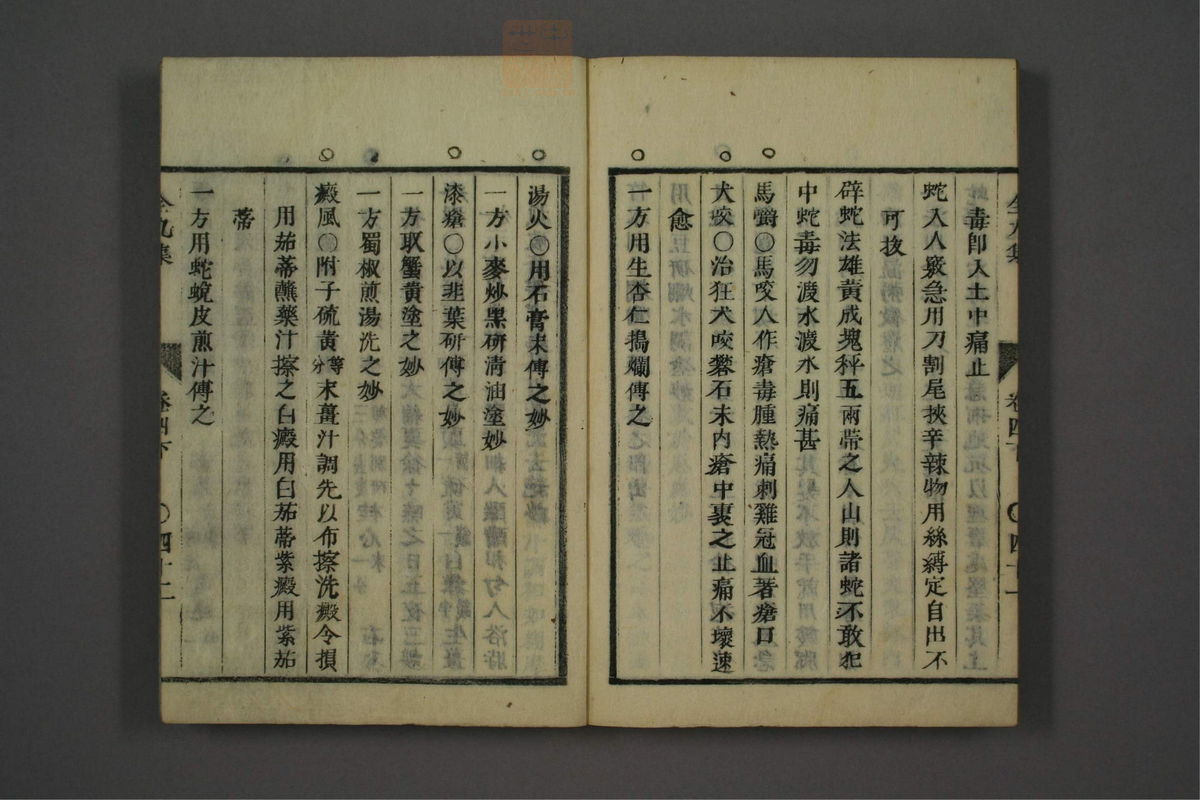 毒即入土中痛止
蛇入人竅急用刀割尾挾辛辣物用絲縛定自出不
可拔
辟蛇法雄黃成塊秤五兩帶之入山則諸蛇不敢犯
中蛇毒勿渡水渡水則痛甚
馬嚙○馬咬人作瘡毒腫熱痛刺雞冠血著瘡口
犬咬○治狂犬咬礬石末內瘡中裹之止痛不壞速
愈
一方用生杏仁搗爛傅之
卷四下 ○四十一
湯火○用石膏末傅之妙
一方小麥炒黑研清油塗妙
漆瘡○以韭葉研傅之妙
一方取蟹黃塗之妙
一方蜀椒煎湯洗之妙
癜風○附子硫黃等分末薑汁調先以布擦洗癜令損
用茄蒂蘸藥汁擦之白癜用白茄蒂紫癜用紫茄
蒂
一方用蛇蛻皮煎汁傅之
全九集
卷四下 ○四十二